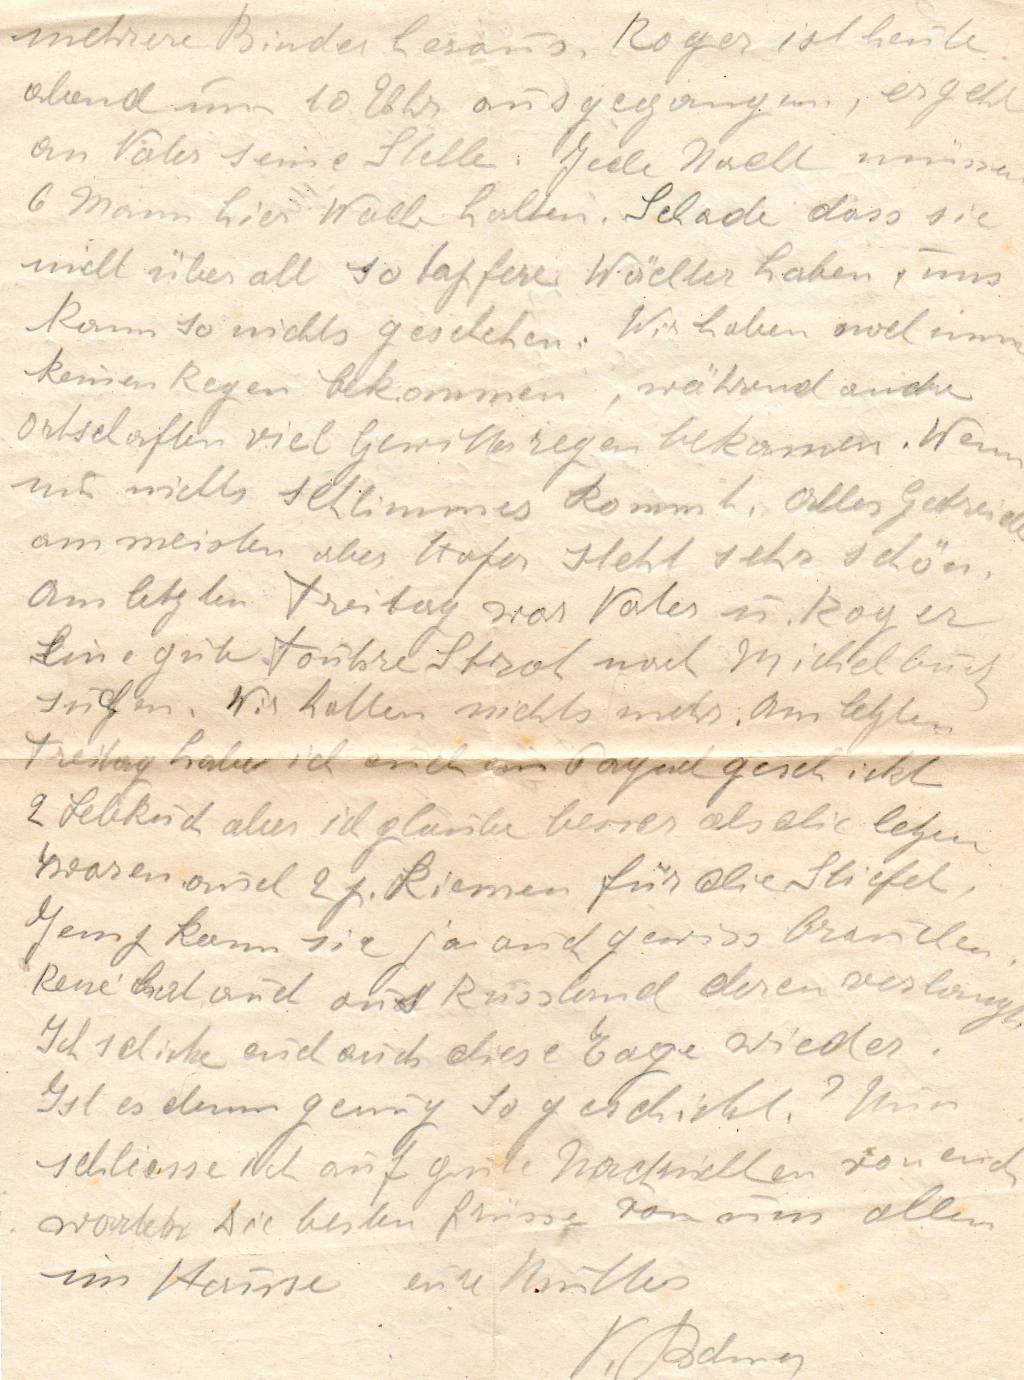 mehrere Binder heraus. Roger ist heute
abend um 10 Uhr ausgegangen, er geht
an Vater seine Stelle. Jede Nacht müssen
6 Mann hier Wache halten. Schade dass sie
nicht überall so tapfere Wächter haben, uns
kann so nichts geschehen. Wir haben noch imm
keinen Regen bekommen, während andre
Ortschaften viel Gewitterregen bekamen. Wenn
nur nichts schlimmes kommt. Alles Getreide
am meisten aber Hafer steht sehr schön.
Am letzten Freitag war Vater u. Roger
eine gute Fouhre Stroh nach Michelbuch
suchen. Wir hatten nichts mehr. Am letzten
Freitag habe ich euch ein Paquet geschickt
2 Lebkuch aber ich glaube besser als die letzen
waren auch 2 p. Riemen für die Stiefel,
kann sie ja auch gewiss brauchen.
René hat auch aus Russland deren verlangt.
Ich schicke euch auch diese Tage wieder.
Ist es denn genug so geschickt.? Nun
schliesse ich auf gute Nachrichten von euch
warten Die besten Grüsse von uns allen
im Hause eure Mutter
V.